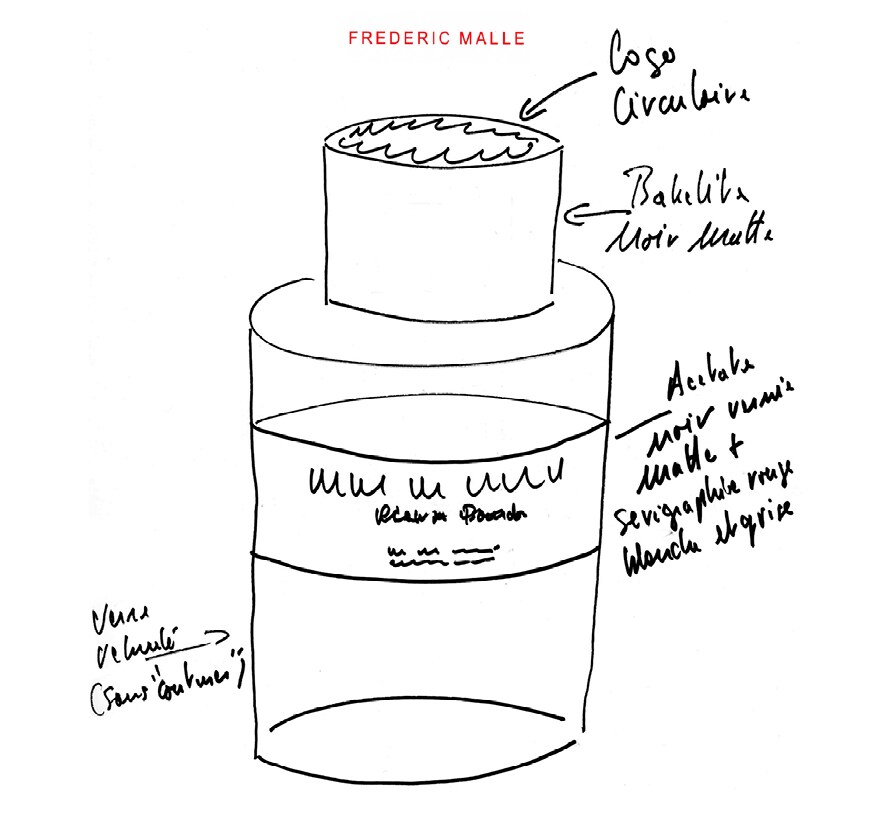 FREDERIC MALLE
Logo
Circulaire
Bakelite
Noir Matte
Acetate
noir vernie
matte +
serigraphie rouge
blanche et grise
Verre
velouté
(sans "coutures")